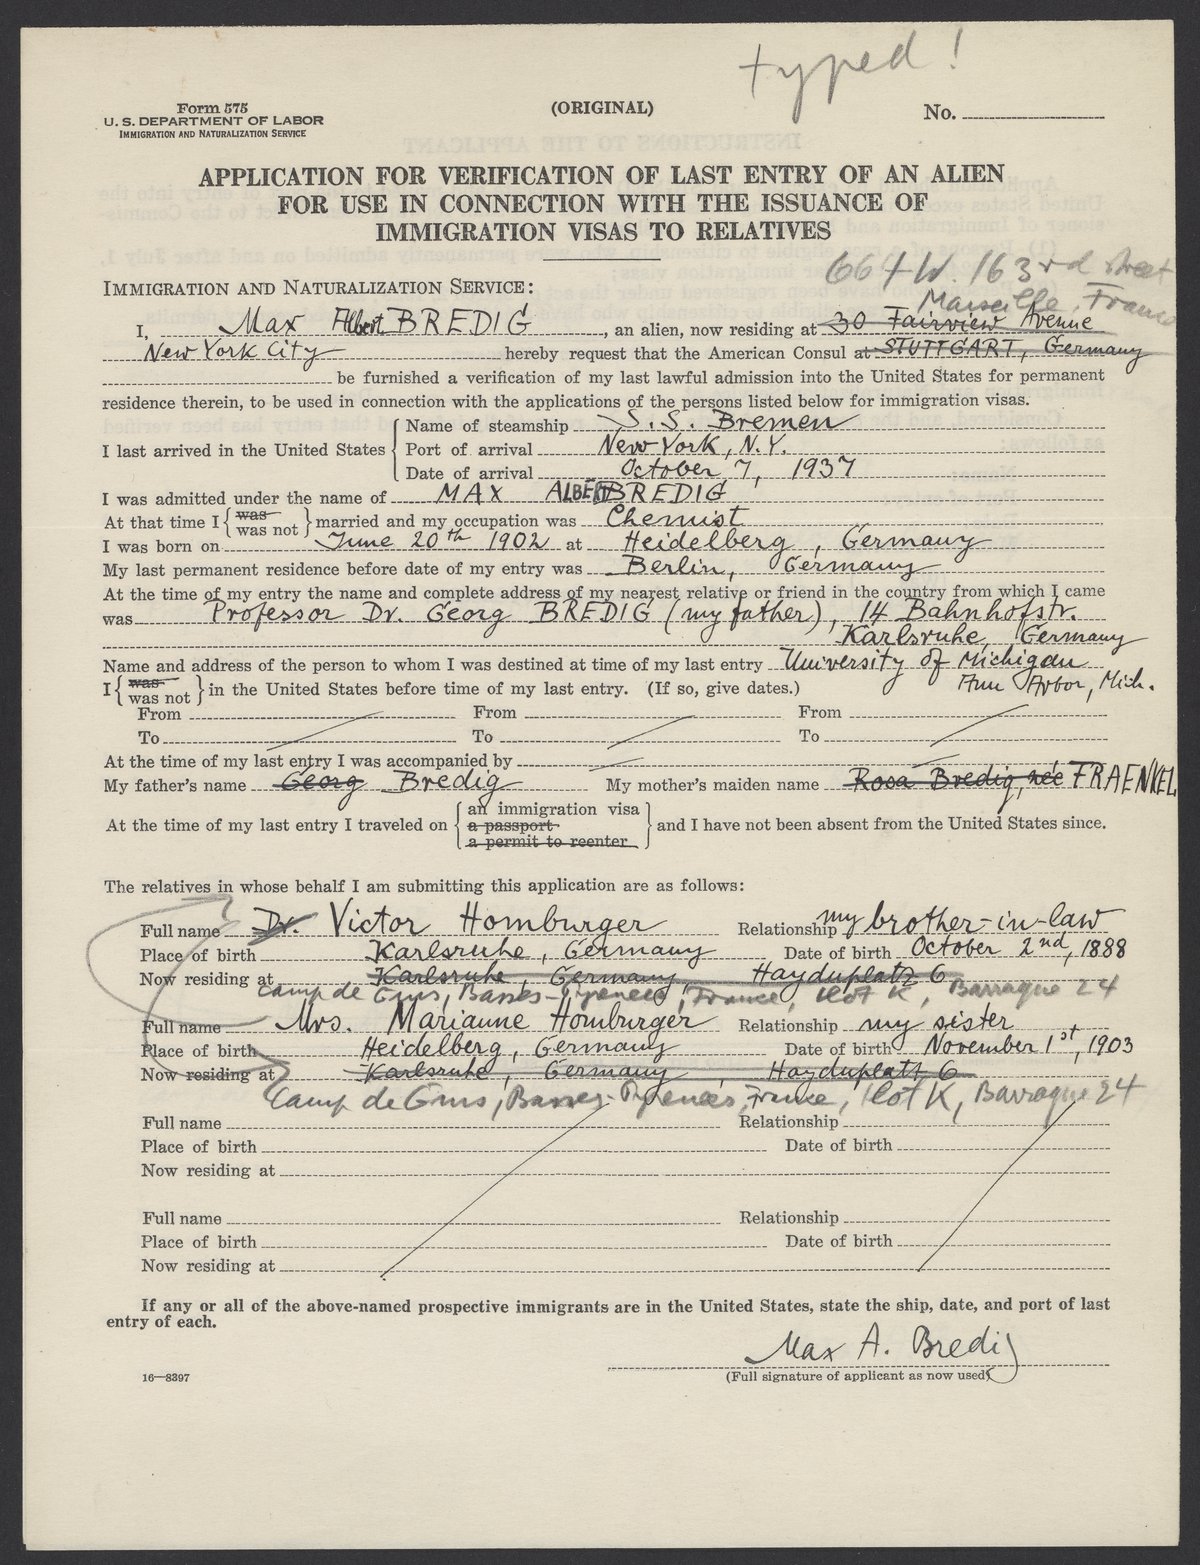 typed!
Form 575
U. S. DEPARTMENT OF LABOR
IMMIGRATION AND NATURALIZATION SERVICE
(ORIGINAL)
No.
APPLICATION FOR VERIFICATION OF LAST ENTRY OF AN ALIEN
FOR USE IN CONNECTION WITH THE ISSUANCE OF
IMMIGRATION VISAS TO RELATIVES
664 W. 163rd street
IMMIGRATION AND NATURALIZATION SERVICE:
Marseille, France
I, Max Albert BREDIG, an alien, now residing at 30 Fairview Avenue
New York City hereby request that the American Consul at STUTTGART, Germany
be furnished a verification of my last lawful admission into the United States for permanent
residence therein, to be used in connection with the applications of the persons listed below for immigration visas.
I last arrived in the United States
Name of steamship S.S. Bremen
Port of arrival New York, N.Y.
Date of arrival October 7, 1937
I was admitted under the name of MAX ALBERT BREDIG
At that time I { was was not } married and my occupation was Chemist
I was born on June 20th 1902 at Heidelberg, Germany
My last permanent residence before date of my entry was Berlin, Germany
At the time of my entry the name and complete address of my nearest relative or friend in the country from which I came
was Professor Dr. Georg BREDIG (my father), 14 Bahnhofstr.
Karlsruhe, Germany
Name and address of the person to whom I was destined at time of my last entry University of Michigan
Ann Arbor, Mich.
I { was was not } in the United States before time of my last entry. (If so, give dates.)
From From From
To To To
At the time of my last entry I was accompanied by
My father's name Georg Bredig My mother's maiden name Rosa Bredig, née FRAENKEL
At the time of my last entry I traveled on { an immigration visa
a passport
a permit to reenter } and I have not been absent from the United States since.
The relatives in whose behalf I am submitting this application are as follows:
Full name Dr. Victor Homburger Relationship my brother-in-law
Place of birth Karlsruhe, Germany Date of birth October 2nd, 1888
Now residing at Karlsruhe, Germany Haydnplatz 6
Camp de Gurs, Basses-Pyrenees, France, Ilot K, Barraque 24
Full name Mrs. Marianne Homburger Relationship my sister
Place of birth Heidelberg, Germany Date of birth November 1st, 1903
Now residing at Karlsruhe, Germany, Haydnplatz 6
Camp de Gurs, Basses-Pyrenees, France, Ilot K, Barraque 24
Full name Relationship
Place of birth Date of birth
Now residing at
Full name Relationship
Place of birth Date of birth
Now residing at
If any or all of the above-named prospective immigrants are in the United States, state the ship, date, and port of last
entry of each.
Max A. Bredig
16—8397
(Full signature of applicant as now used)